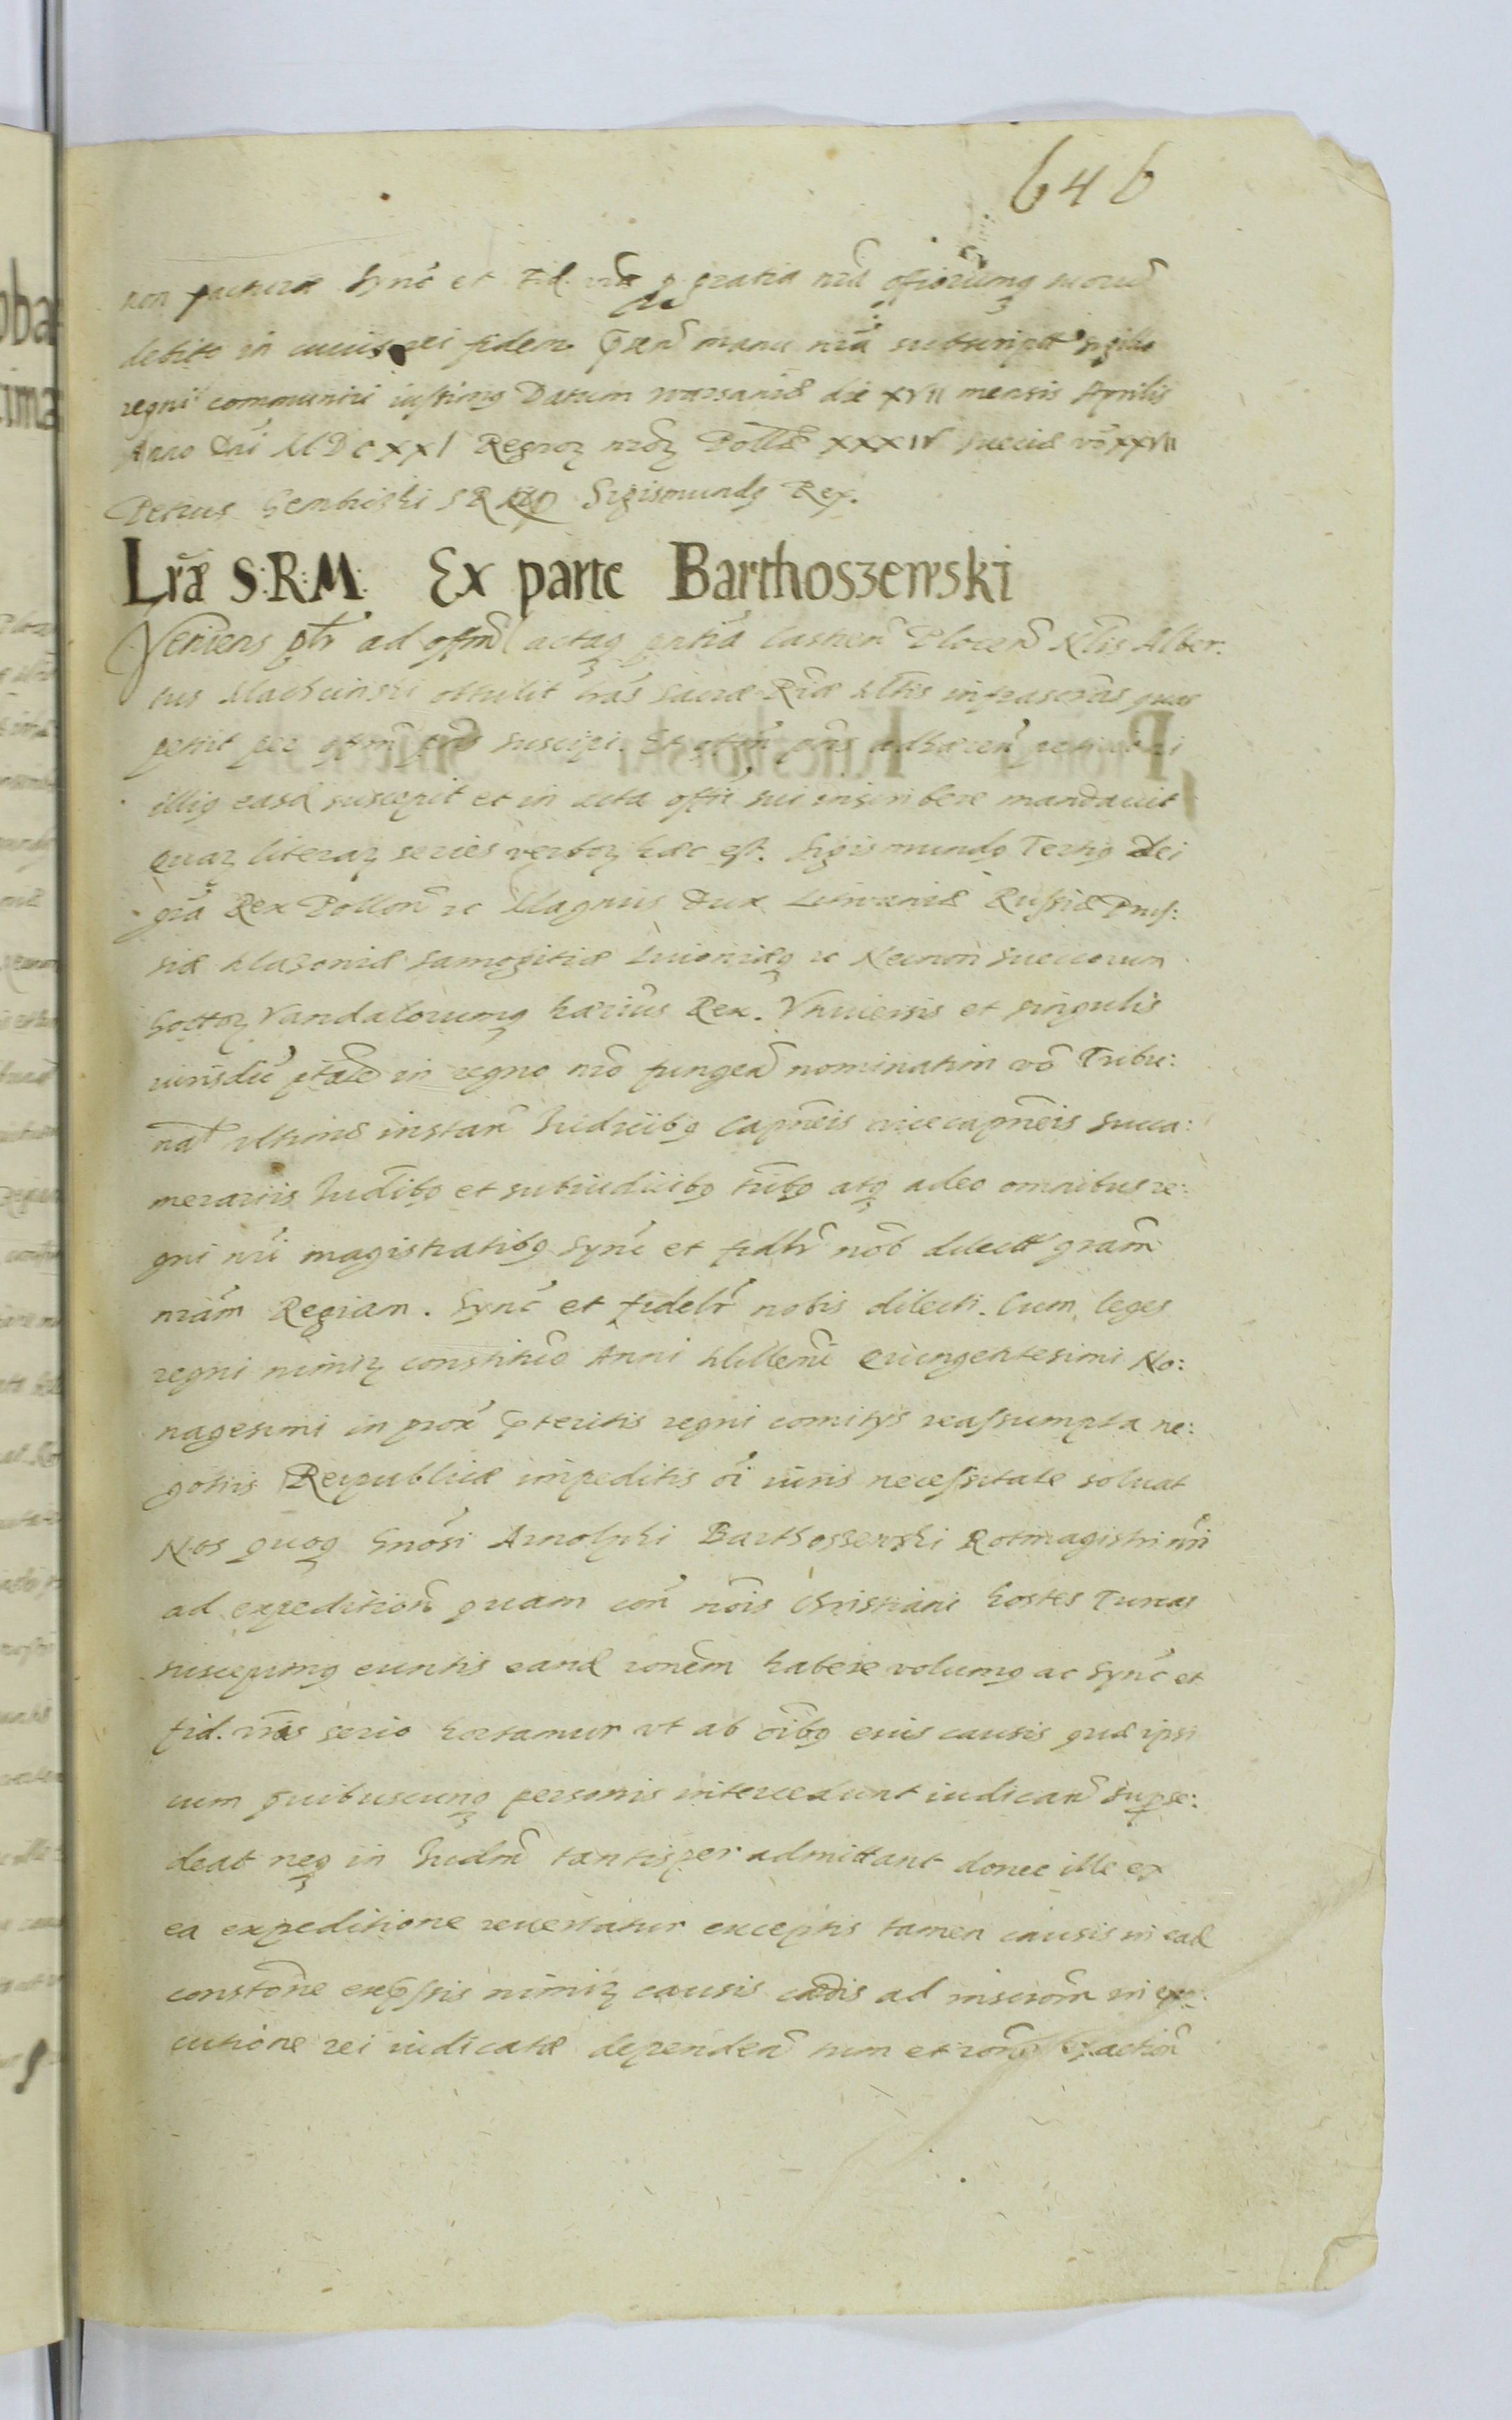 646
non factura Sync et Fid. vra p gratia nra officiorumq suorũ
debito in cuius rei fidem pñtes manu nra subscript sigillo
regni communiri iussimq Datum Warsaviæ die XVII mensis Aprilis
Anno Dñi MDCXXI Regnoꝝ nroꝝ Poll͠æ XXXIV Sueciæ vo XXVII
Petrus Gembiski SR Sigismundq Rex.
Lr̃æ S:R:M: Ex parte Barthoszewski
Veniens ad offm̃ actaq pntia Castren̄ Plocen̄ Nl͠is Alber:
tus obtulit lr̃as Sacræ Riæ Mttis infrascr̃as quas
petiit per offm̃ pñs suscipi. Et offm̃ pñs
illiq easd suscepit et in acta offii sui inscribere mandavit
quaꝝ literaꝝ series verboꝝ hæc est. Sigismundq Tertiq Dei
gr̃a Rex Pollon̄ ꝛc Magnus Dux Litwaniæ Russiæ Prus:
siæ Mazoviæ Samogitiæ Livoniæq ꝛc Necnon Suecorum
Gottoꝝ Vandalorumq hærius Rex. Vniuersis et singulis
iurisdic̄ in regno nro fungen̄ nominatim vo Tribu:
nal ultimæ instan̄ Iudicibq Capneis vicecapneis Succa:
merariis Iudibq et subiudicibq atq adeo omnibus re:
gni nri magistratibq Sync et fidlr nob dilect gram
nram Regiam. Sync et fidelr nobis dilecti. Cum leges
regni nimiꝝ constituo Anni Millenī Quingentesimi No:
nagesimi in prox pteritis regni comitijs reassumpta ne:
gotiis Reipublicæ impeditis oi iuris necessitate soluat
Nos quoq Gnosi Arnolphi Barthoszewski Rotmagistri nri
ad expeditionē quam con nois Christiani hostes Turcas
suscepimq euntis eand ronem habere volumq ac Sync et
fid. vras serio hortamur vt ab oibq eius causis quæ ipsi
cum quibuscunq personis intercedunt iudicañ superse:
deat neq in Iudm̃ tantisper admittant donec ille ex
ea expeditione reuertatur exceptis tamen causis in ead
constõne expssis nimiꝝ causis ad inscrom in exe:
cutione rei iudicatæ dependen̄ tum et